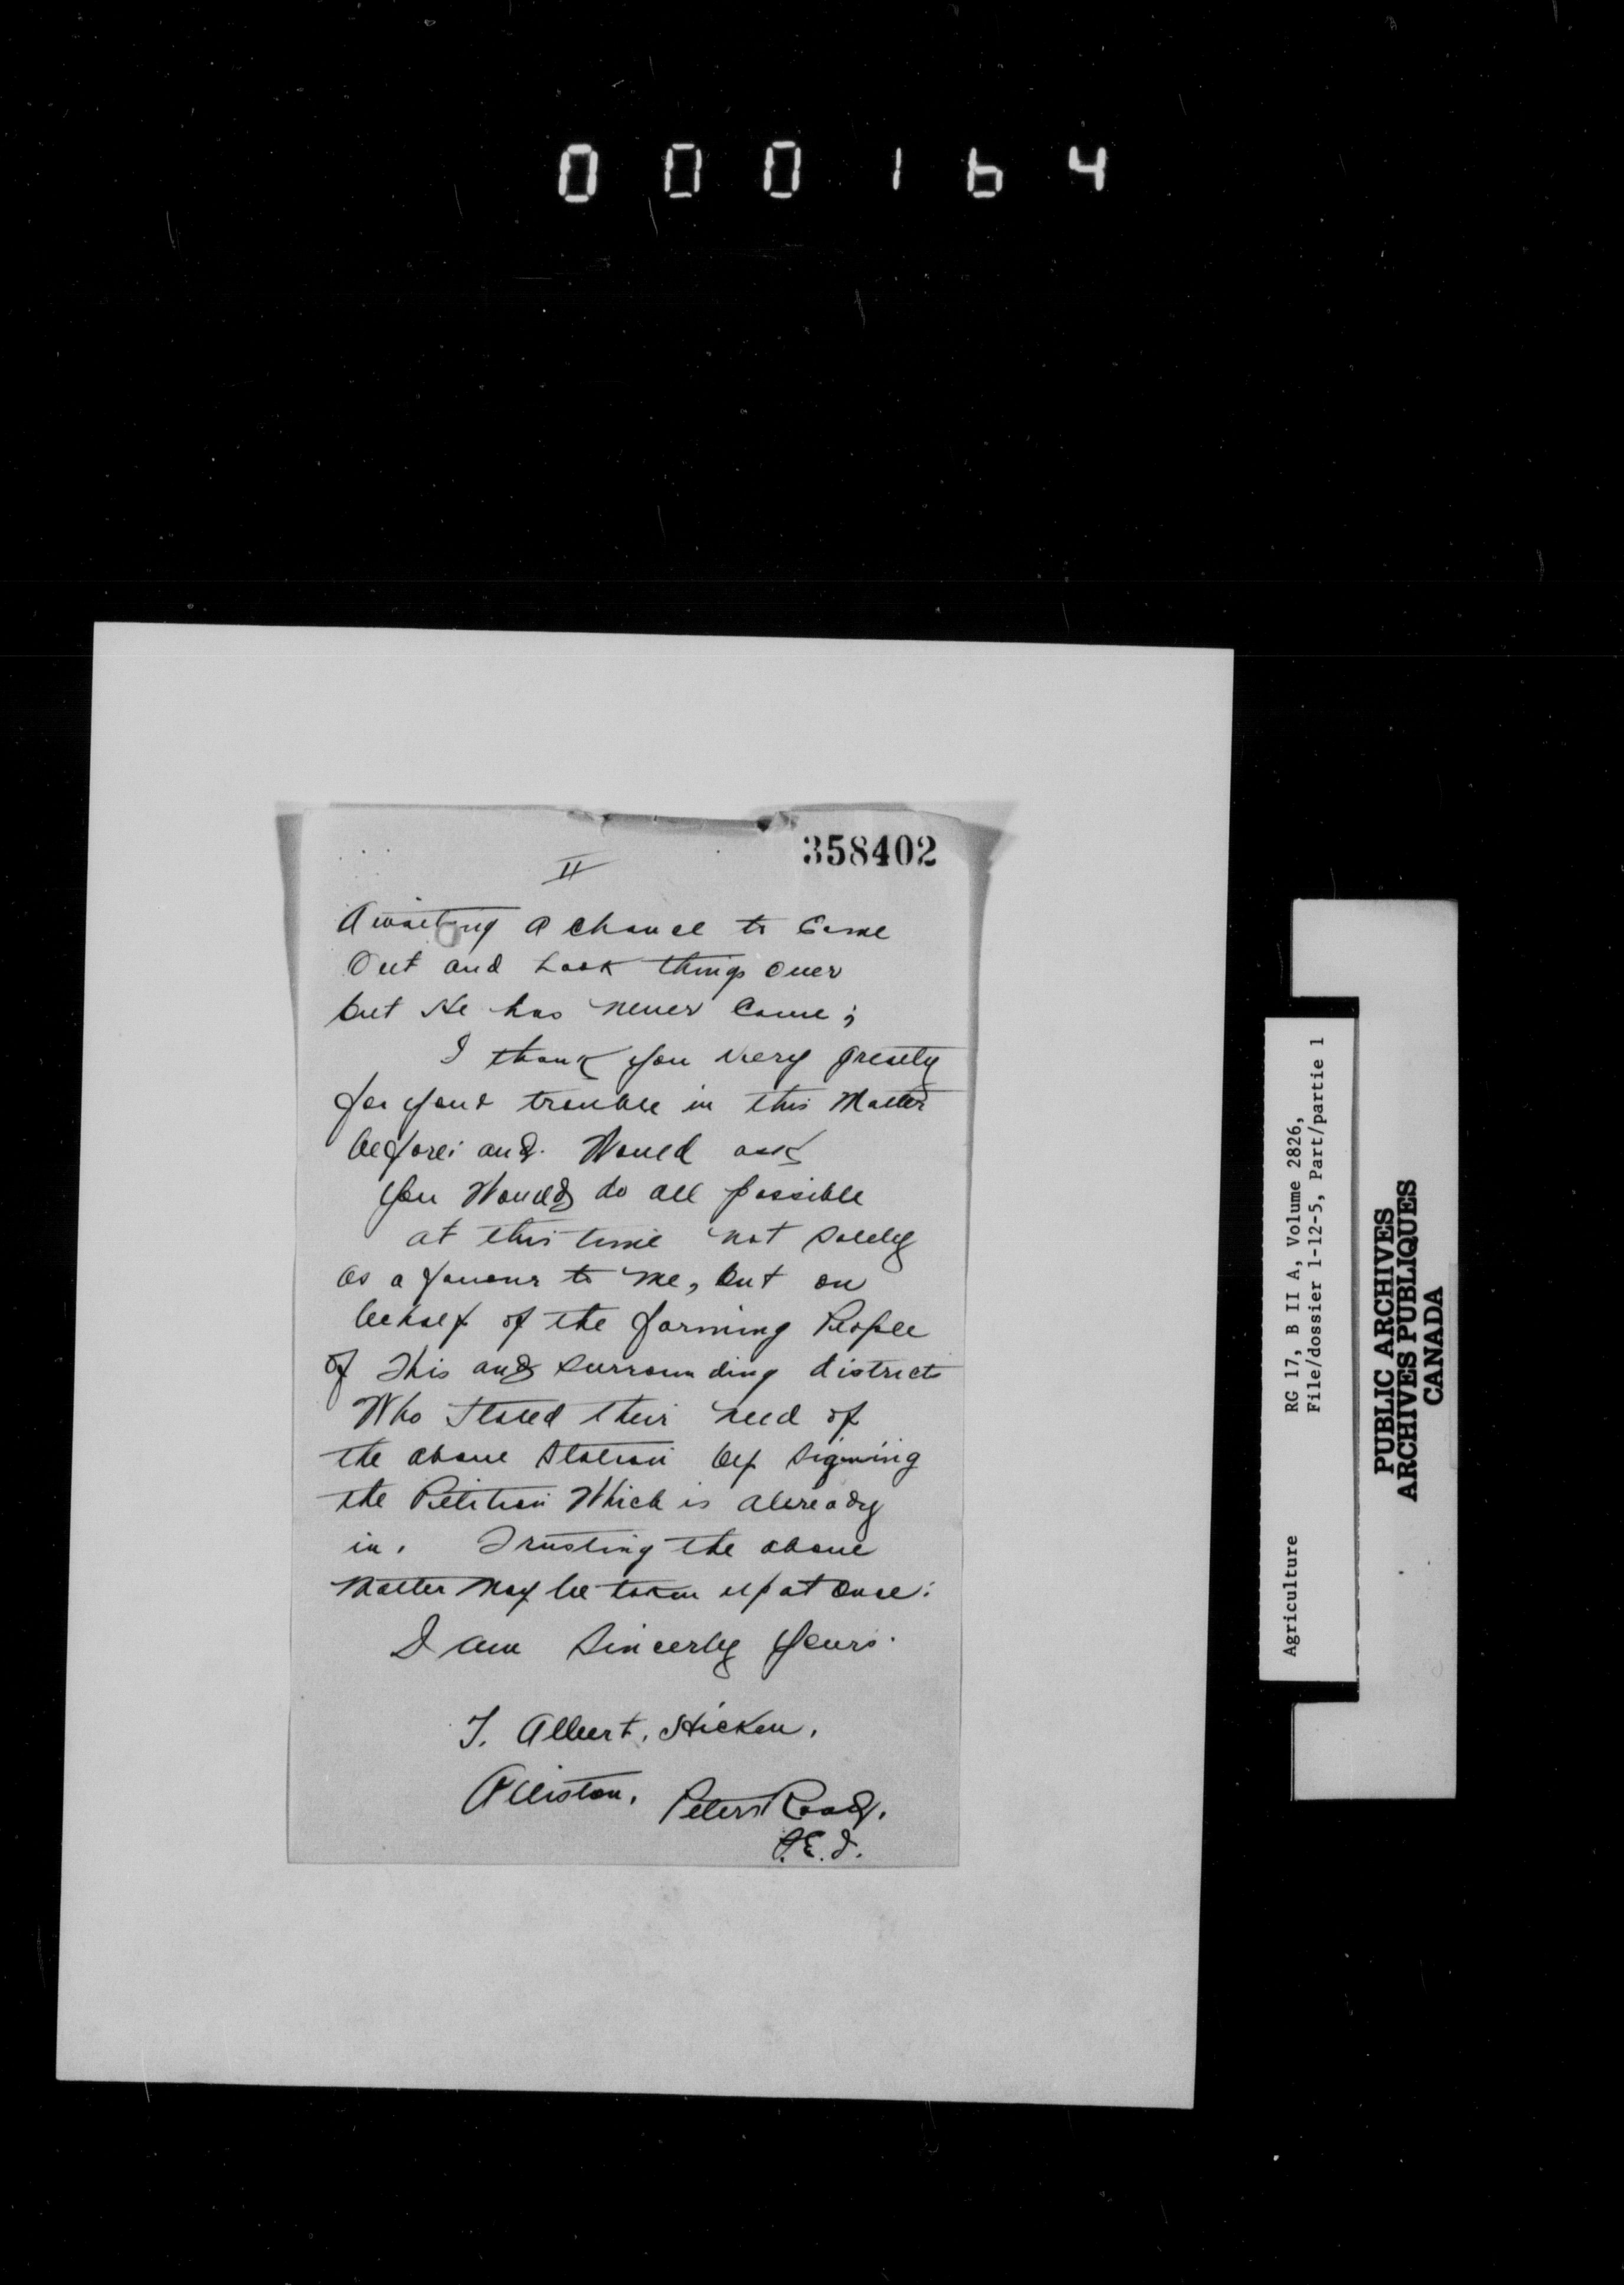 000164
358402
II
Awaiting a chance to Come
Out and Look things over
but He has never Came;
I thank you very greatly
for your trouble in this Matter
before: and. Would ask
you Would do all possible
at this time not solely
as a favour to me, but on
behalf of the farming People
of This and surrounding districts
Who Stated their need of
the above Station by signing
the Petition Which is alrready
in. Trusting the above
Matter May be taken up at Once:
I am Sincerly Yours.
T. Albert. Hicken.
Alliston. Peters Road.
P.E.I.
Agriculture RG 17, B II A, Volume 2826,
File/dossier 1-12-5, Part/partie 1
PUBLIC ARCHIVES
ARCHIVES PUBLIQUES
CANADA